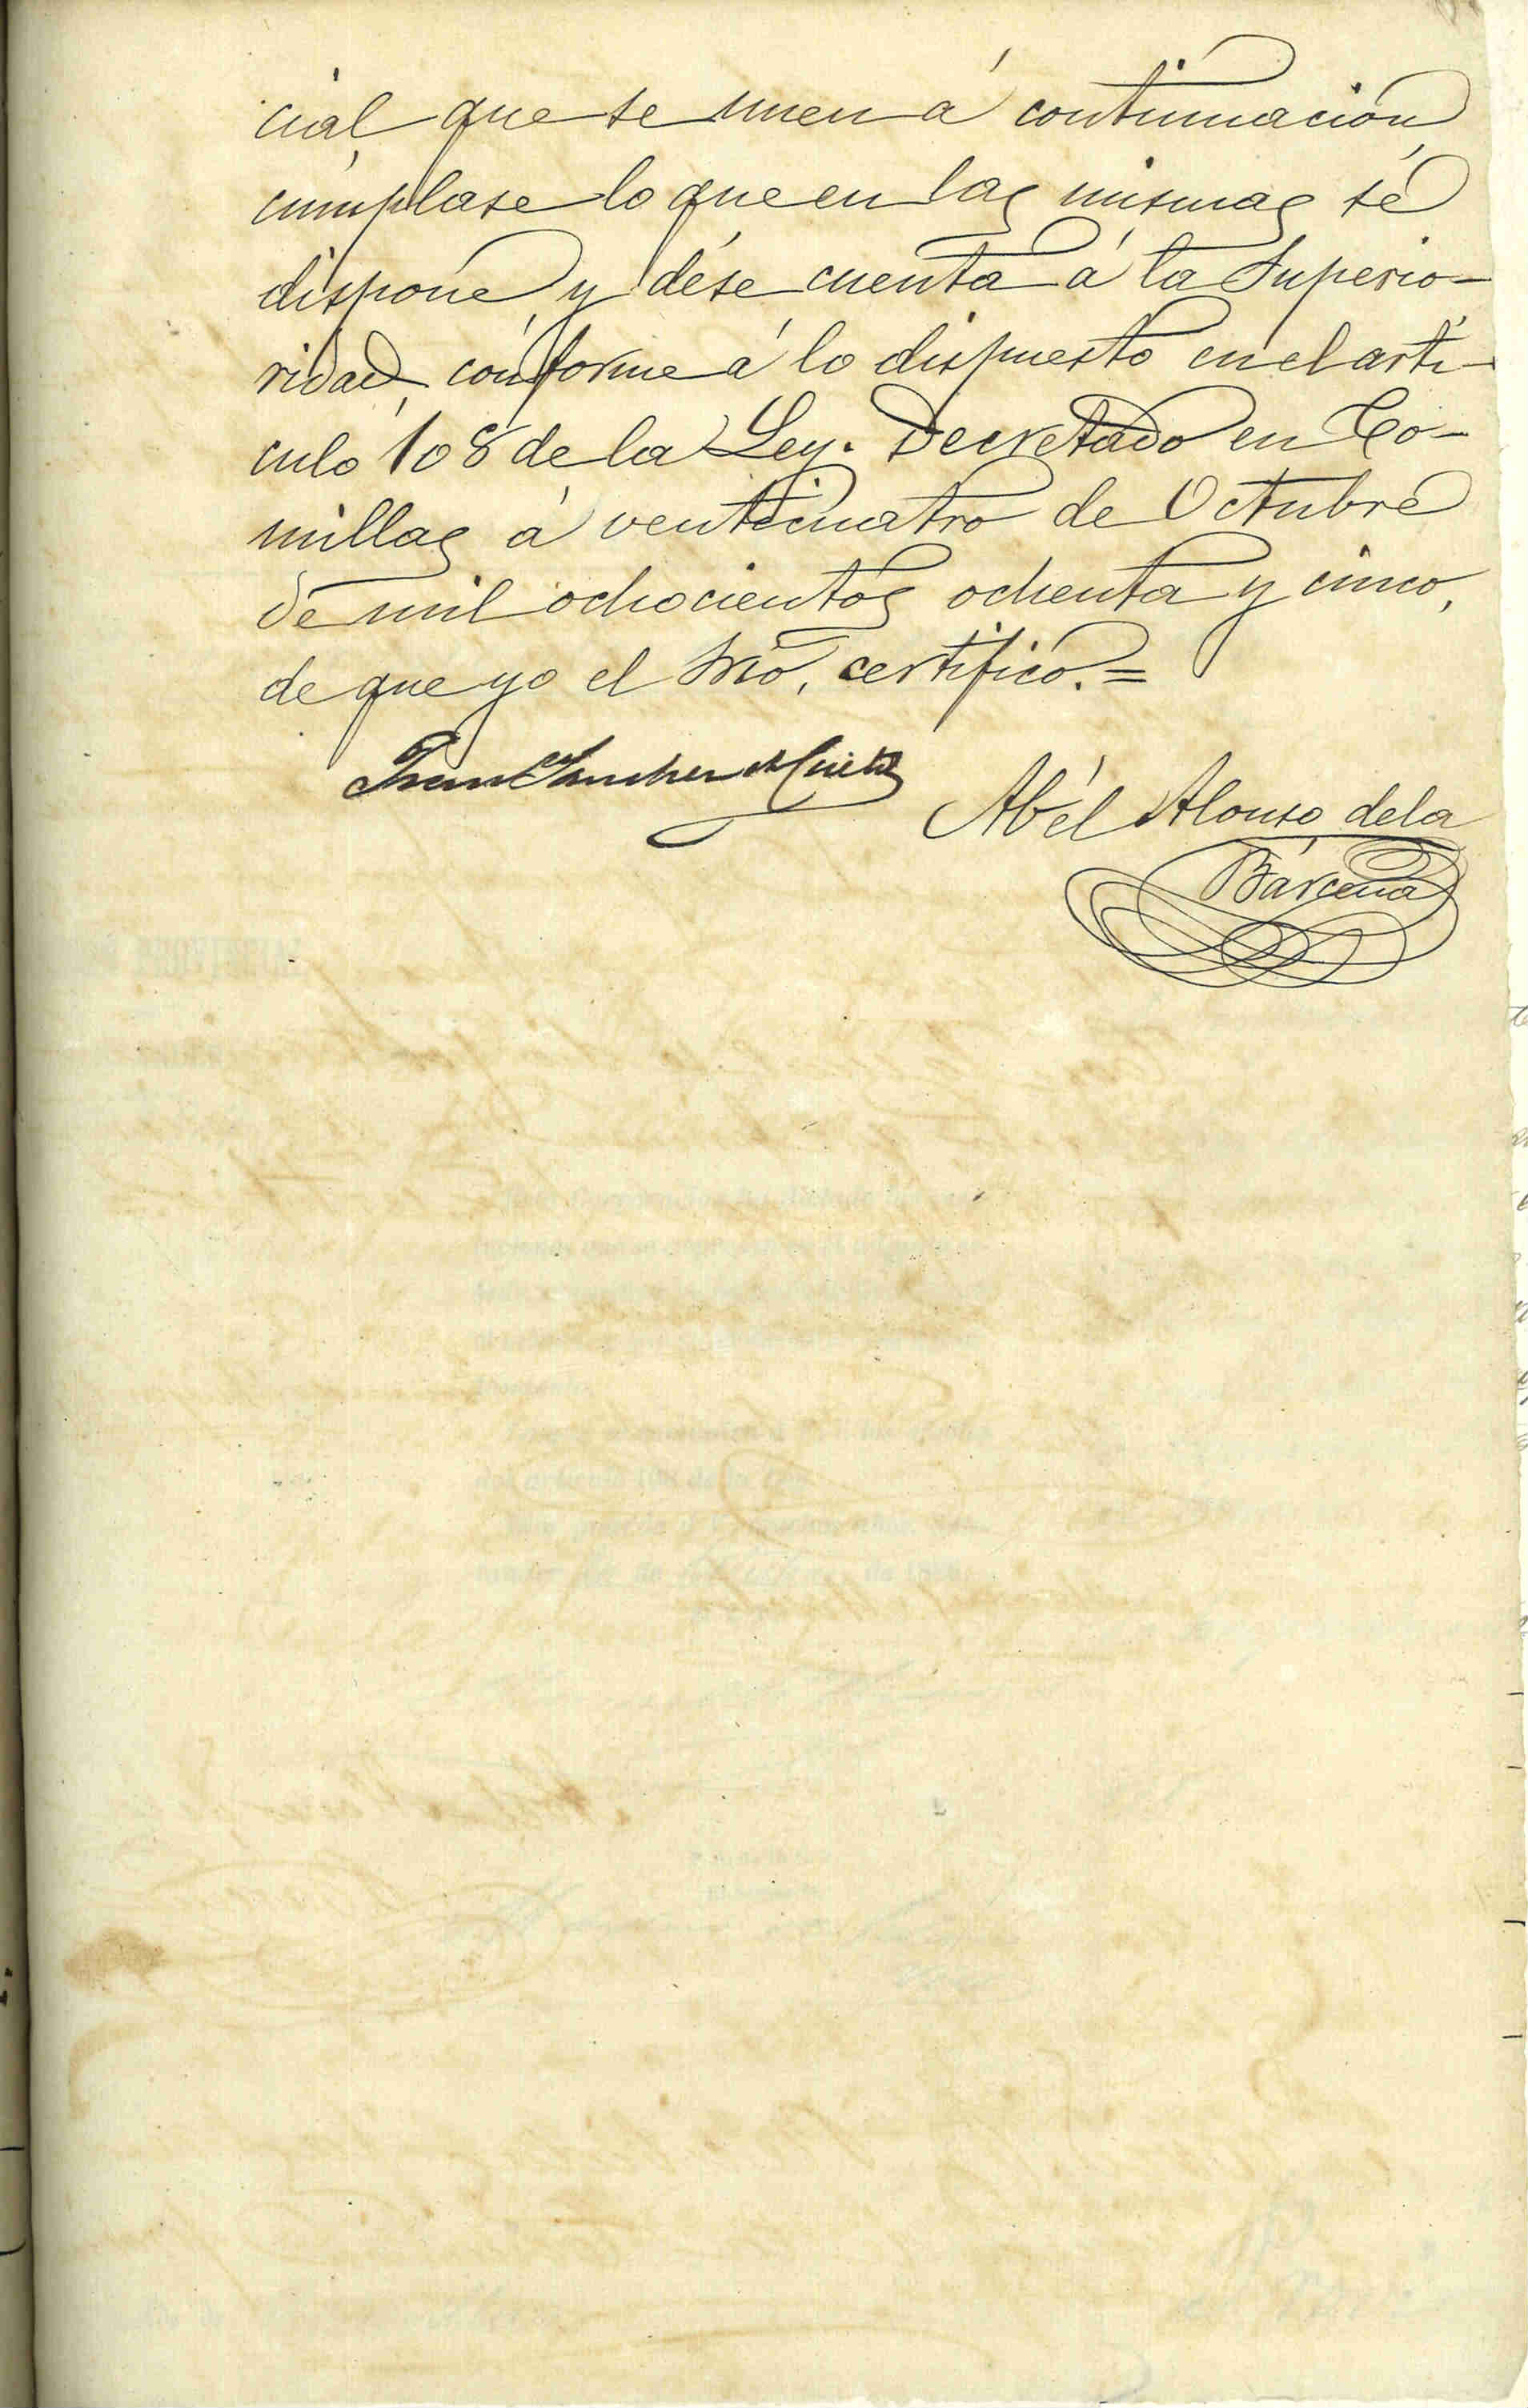 cial que se unen á continuación,
cúmplase lo que en las mismas se
dispone, y dése cuenta á la Superio-
ridad, conforme á lo dispuesto en el artí-
culo 108 de la Ley. Decretado en Co-
millas á venticuatro de Octubre
de mil ochocientos ochenta y cinco,
de que yo el Srio, certifico.=
Sanchez de
Abél Alonso dela
Bárcena